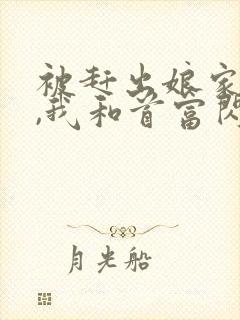 被赶出娘家
,我和首富闪
月光船